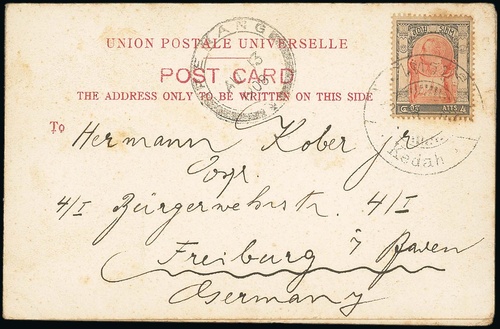 UNION POSTALE UNIVERSELLE
POST CARD
THE ADDRESS ONLY TO BE WRITTEN ON THIS SIDE
To Hermann Kober jr
4/I Bürgerwehrstr. 4/I
Freiburg i Baden
Germany
Kedah
ATTS. 4